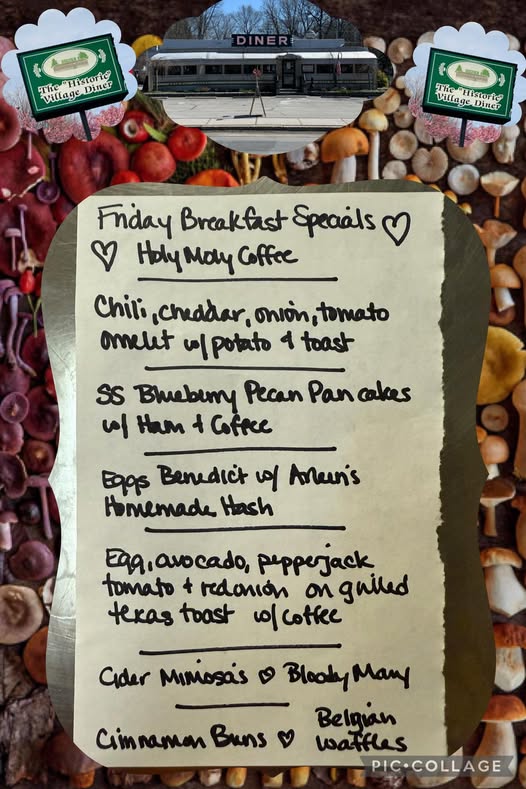 DINER
The "Historic"
Village Diner
The "Historic"
Village Diner
Friday Breakfast Specials ♡
♡ Holy Moly Coffee
Chili, cheddar, onion, tomato
omelet w/ potato + toast
SS Blueberry Pecan Pancakes
w/ Ham + Coffee
Eggs Benedict w/ Arleen's
Homemade Hash
Egg, avocado, pepperjack
tomato + red onion on grilled
texas toast w/ coffee
Cider Mimosa's ♡ Bloody Mary
Cinnamon Buns ♡ Belgian
waffles
PIC•COLLAGE